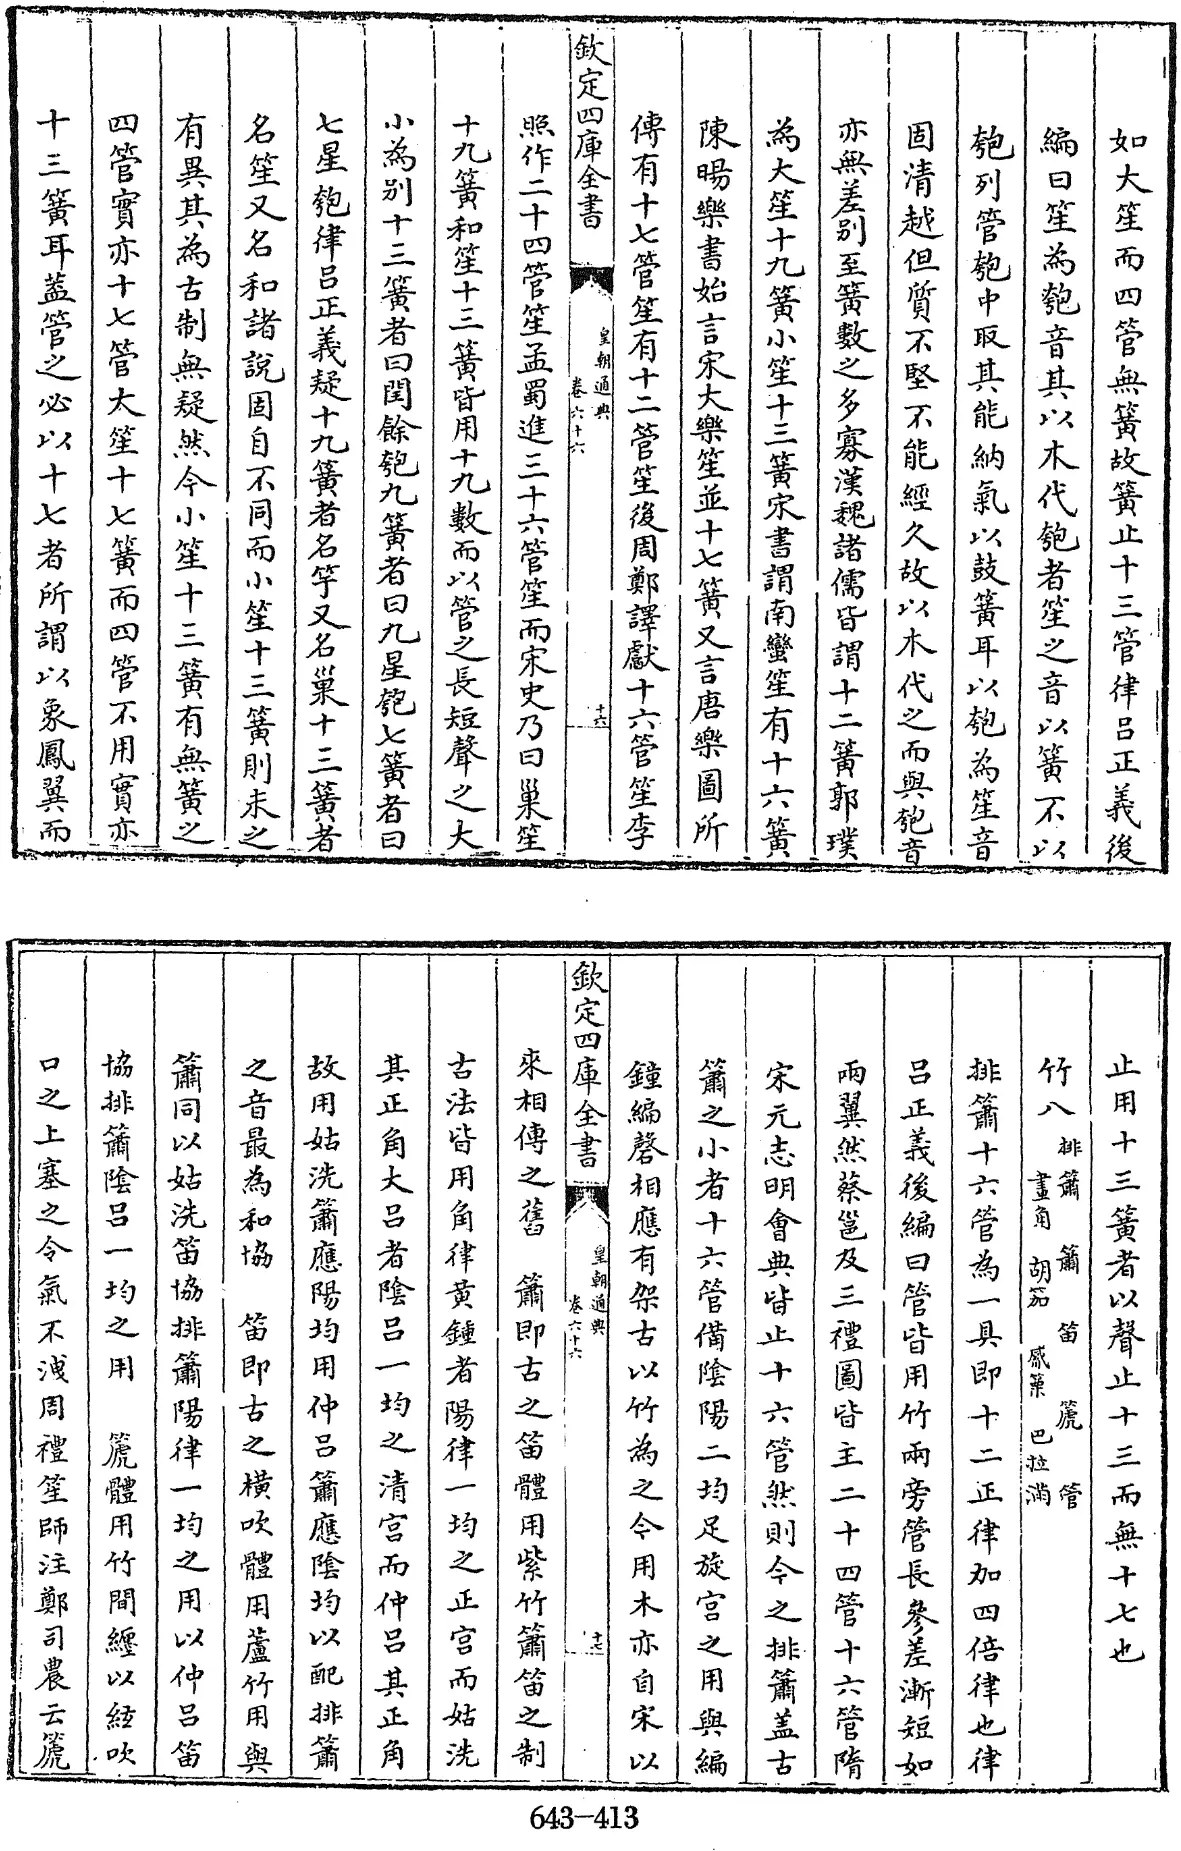 如大笙而四管無簧故簧止十三管律呂正義後
編曰笙為匏音其以木代匏者笙之音以簧不以
匏列管匏中取其能納氣以鼓簧耳以匏為笙音
固清越但質不堅不能經久故以木代之而與匏音
亦無差別至簧數之多寡漢魏諸儒皆謂十二簧郭璞
為大笙十九簧小笙十三簧宋書謂南蠻笙有十六簧
陳暘樂書始言宋大樂笙並十七簧又言唐樂圖所
傳有十七管笙有十二管笙後周鄭譯獻十六管笙李
欽定四庫全書
皇朝通典
卷六十六
十六
照作二十四管笙孟蜀進三十六管笙而宋史乃曰巢笙
十九簧和笙十三簧皆用十九數而以管之長短聲之大
小為別十三簧者曰閏餘匏九簧者曰九星匏七簧者曰
七星匏律呂正義疑十九簧者名竽又名巢十三簧者
名笙又名和諸說固自不同而小笙十三簧則未之
有異其為古制無疑然今小笙十三簧有無簧之
四管實亦十七管大笙十七簧而四管不用實亦
十三簧耳蓋管之必以十七者所謂以象鳳翼而
止用十三簧者以聲止十三而無十七也
竹八 排簫 簫 笛 篪 管
畫角 胡笳 觱篥 巴拉滿
排簫十六管為一具即十二正律加四倍律也律
呂正義後編曰管皆用竹兩旁管長參差漸短如
兩翼然蔡邕及三禮圖皆主二十四管十六管隋
宋元志明會典皆止十六管然則今之排簫蓋古
簫之小者十六管備陰陽二均足旋宮之用與編
鐘編磬相應有架古以竹為之今用木亦自宋以
欽定四庫全書
皇朝通典
卷六十六
十七
來相傳之舊 簫即古之笛體用紫竹簫笛之制
古法皆用角律黃鍾者陽律一均之正宮而姑洗
其正角大呂者陰呂一均之清宮而仲呂其正角
故用姑洗簫應陽均用仲呂簫應陰均以配排簫
之音最為和協 笛即古之橫吹體用蘆竹用與
簫同以姑洗笛協排簫陽律一均之用以仲呂笛
協排簫陰呂一均之用 篪體用竹間纏以絃吹
口之上塞之令氣不洩周禮笙師注鄭司農云篪
643-413